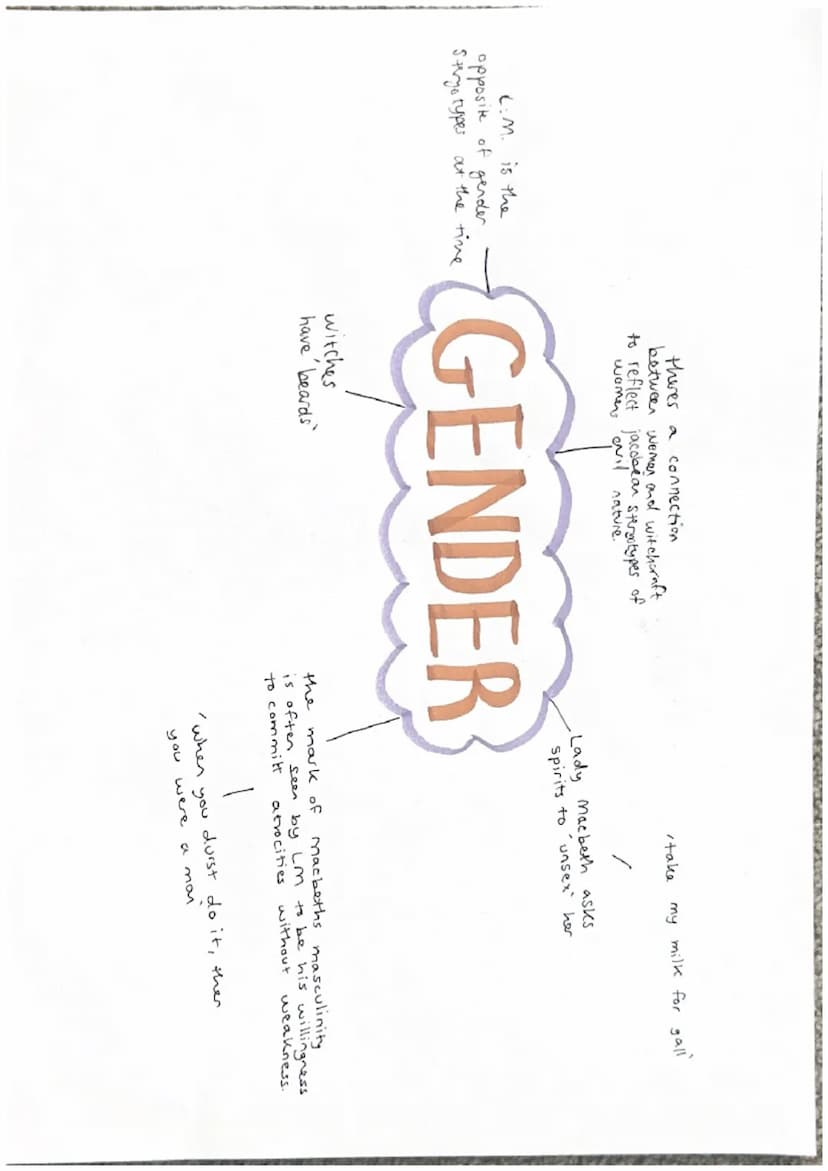 L.M. is the
opposite of gender
stryotypes at the time
theres a connection
between women and witchcraft
to reflect jacobean stereotypes of
womens evil nature.
GENDER
Witches
have 'beards'
Lady Macbeth asks
spirits to 'unsex' her
'take my milk for gall'
the mark of macbeths masculinity
is often seen by LM to be his willingness
to committ atrocities without weakness.
'when you durst do it, then
you were a man'